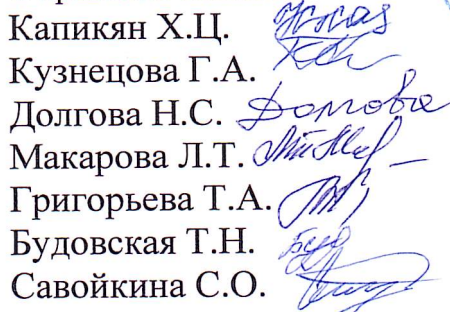 Капикян Х.Ц.
Кузнецова Г.А.
Долгова Н.С. Долгова
Макарова Л.Т.
Григорьева Т.А.
Будовская Т.Н.
Савойкина С.О.